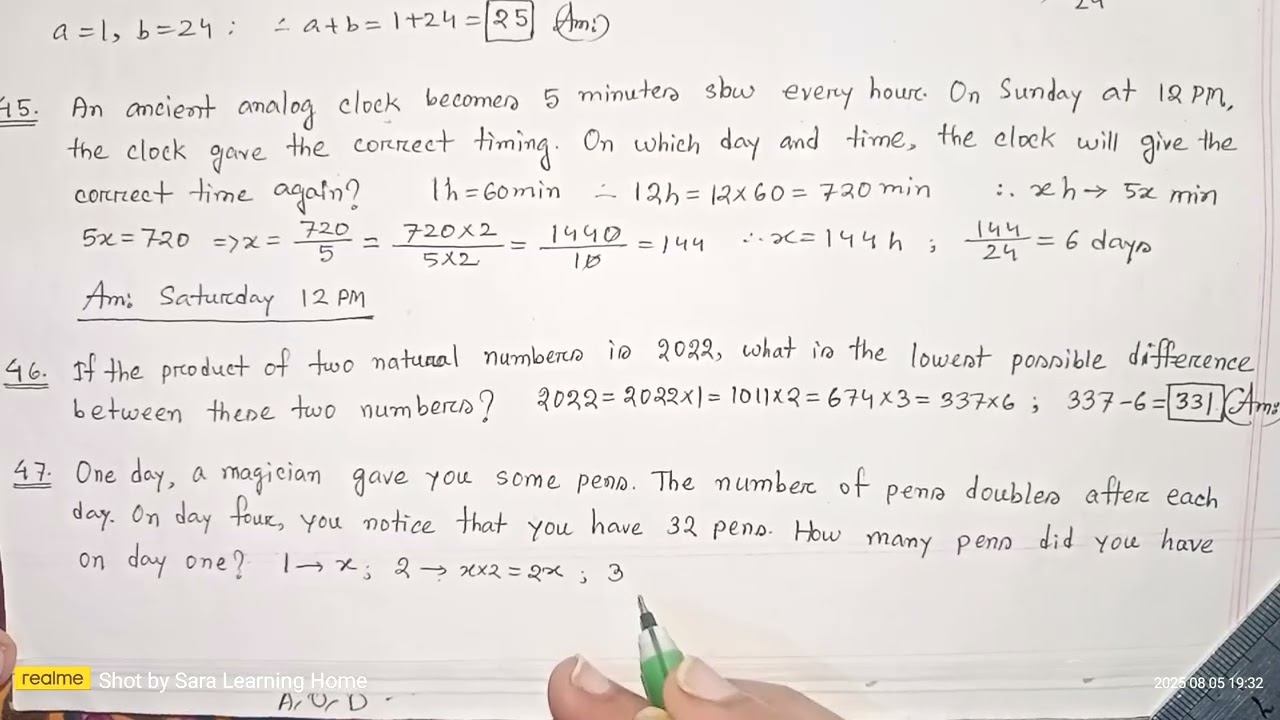 24
a=1, b=24 : ∴ a+b=1+24=25 Ans:
45. An ancient analog clock becomes 5 minutes slow every hour. On Sunday at 12 PM,
the clock gave the correct timing. On which day and time, the clock will give the
correct time again? 1h=60min ∴ 12h=12×60=720 min ∴ xh→5x min
5x=720 =>x= 720/5 = 720×2/5×2 = 1440/10 =144 ∴x=144h ; 144/24 = 6 days
Ans: Saturday 12 PM
46. If the product of two natural numbers is 2022, what is the lowest possible difference
between these two numbers? 2022=2022×1=1011×2=674×3=337×6 ; 337-6=331 Ans:
47. One day, a magician gave you some pens. The number of pens doubles after each
day. On day four, you notice that you have 32 pens. How many pens did you have
on day one? 1→x; 2→x×2=2x ; 3
realme Shot by Sara Learning Home
2025 08 05 19:32